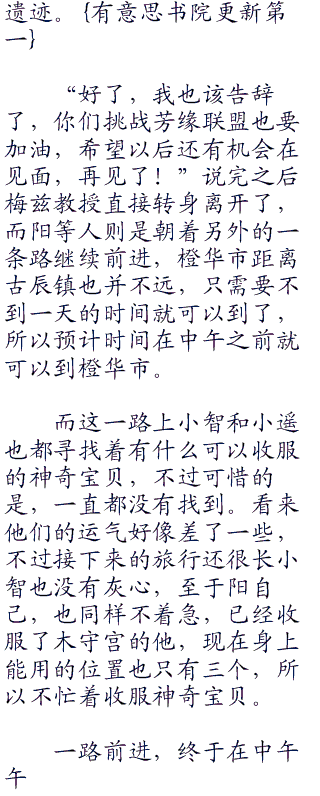 遗迹。{有意思书院更新第
一}
“好了，我也该告辞
了，你们挑战芳缘联盟也要
加油，希望以后还有机会在
见面，再见了！”说完之后
梅兹教授直接转身离开了，
而阳等人则是朝着另外的一
条路继续前进，橙华市距离
古辰镇也并不远，只需要不
到一天的时间就可以到了，
所以预计时间在中午之前就
可以到橙华市。
而这一路上小智和小遥
也都寻找着有什么可以收服
的神奇宝贝，不过可惜的
是，一直都没有找到。看来
他们的运气好像差了一些，
不过接下来的旅行还很长小
智也没有灰心，至于阳自
己，也同样不着急，已经收
服了木守宫的他，现在身上
能用的位置也只有三个，所
以不忙着收服神奇宝贝。
一路前进，终于在中午
午